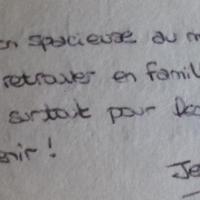 en spacieuse au m
retrouver en famil
surtout pour
enir !
Je